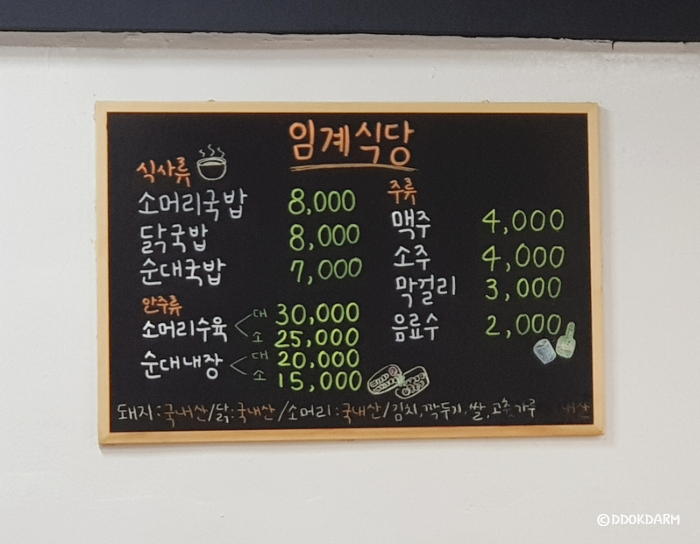 임계식당
식사류
소머리국밥 8,000
닭국밥 8,000
순대국밥 7,000
안주류
소머리수육 대 30,000
소 25,000
순대내장 대 20,000
소 15,000
주류
맥주 4,000
소주 4,000
막걸리 3,000
음료수 2,000
돼지:국내산/닭:국내산/소머리:국내산/김치,깍두기,쌀,고춧가루 내산
©DDOKDARM